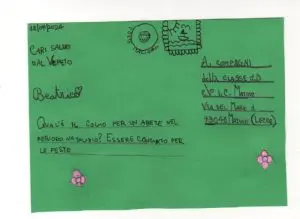 CARI SALUTI
DAL VENETO
Beatrice
QUAL'È IL COLMO PER UN ABETE NEL
PERIODO NATALIZIO? ESSERE CONCIATO PER
LE FESTE
AI COMPAGNI
DELLA CLASSE
I.C. MATINO
VIA DEL MARE
73046 MATINO (LECCE)